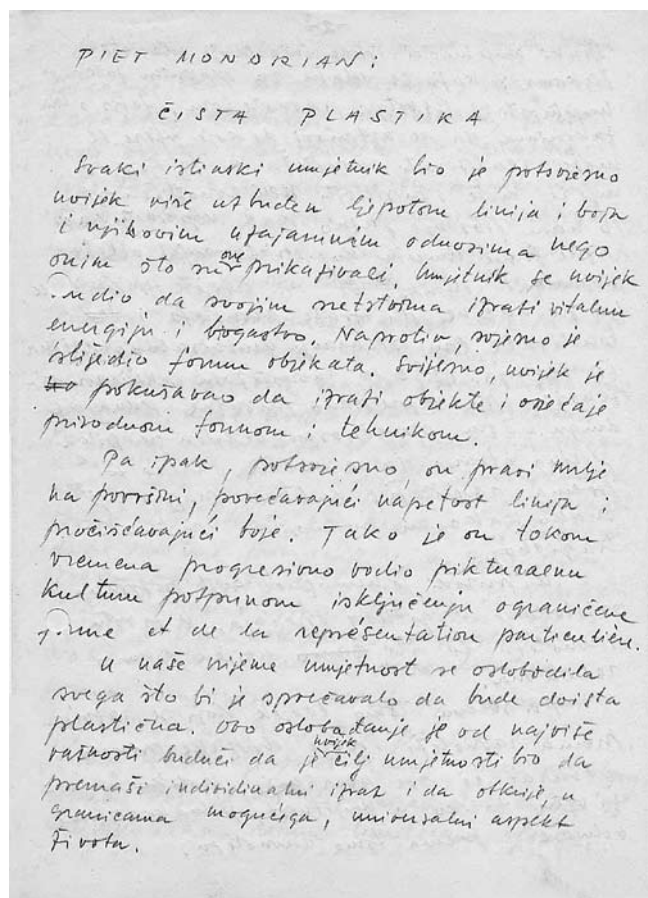 PIET MONDRIAN:
ČISTA PLASTIKA
Svaki istinski umjetnik bio je potsvjesno
uvijek više uzbuđen ljepotom linija i boja
i njihovim uzajamnim odnosima nego
onim što su one prikazivali. Umjetnik se uvijek
trudio da svojim sretstvima izrazi vitalnu
energiju i bogastvo. Naprotiv, svjesno je
slijedio formu objekata. Svijesno, uvijek je
pokušavao da izrazi objekte i osjećaje
prirodnom formom i tehnikom.
Pa ipak, potsvjesno, on pravi
na površini, povećavajući napetost linija i
pročišćavajući boje. Tako je on tokom
vremena progresivno vodio pikturalnu
kulturu potpunom isključenju ograničene
forme et de la représentation particulière.
U naše vrijeme umjetnost se oslobodila
svega što bi je sprečavalo da bude doista
plastična. Ovo oslobađanje je od najviše
važnosti budući da je uvijek cilj umjetnosti bio da
premaši individualni izraz i da otkrije, u
granicama mogućega, univerzalni aspekt
života.